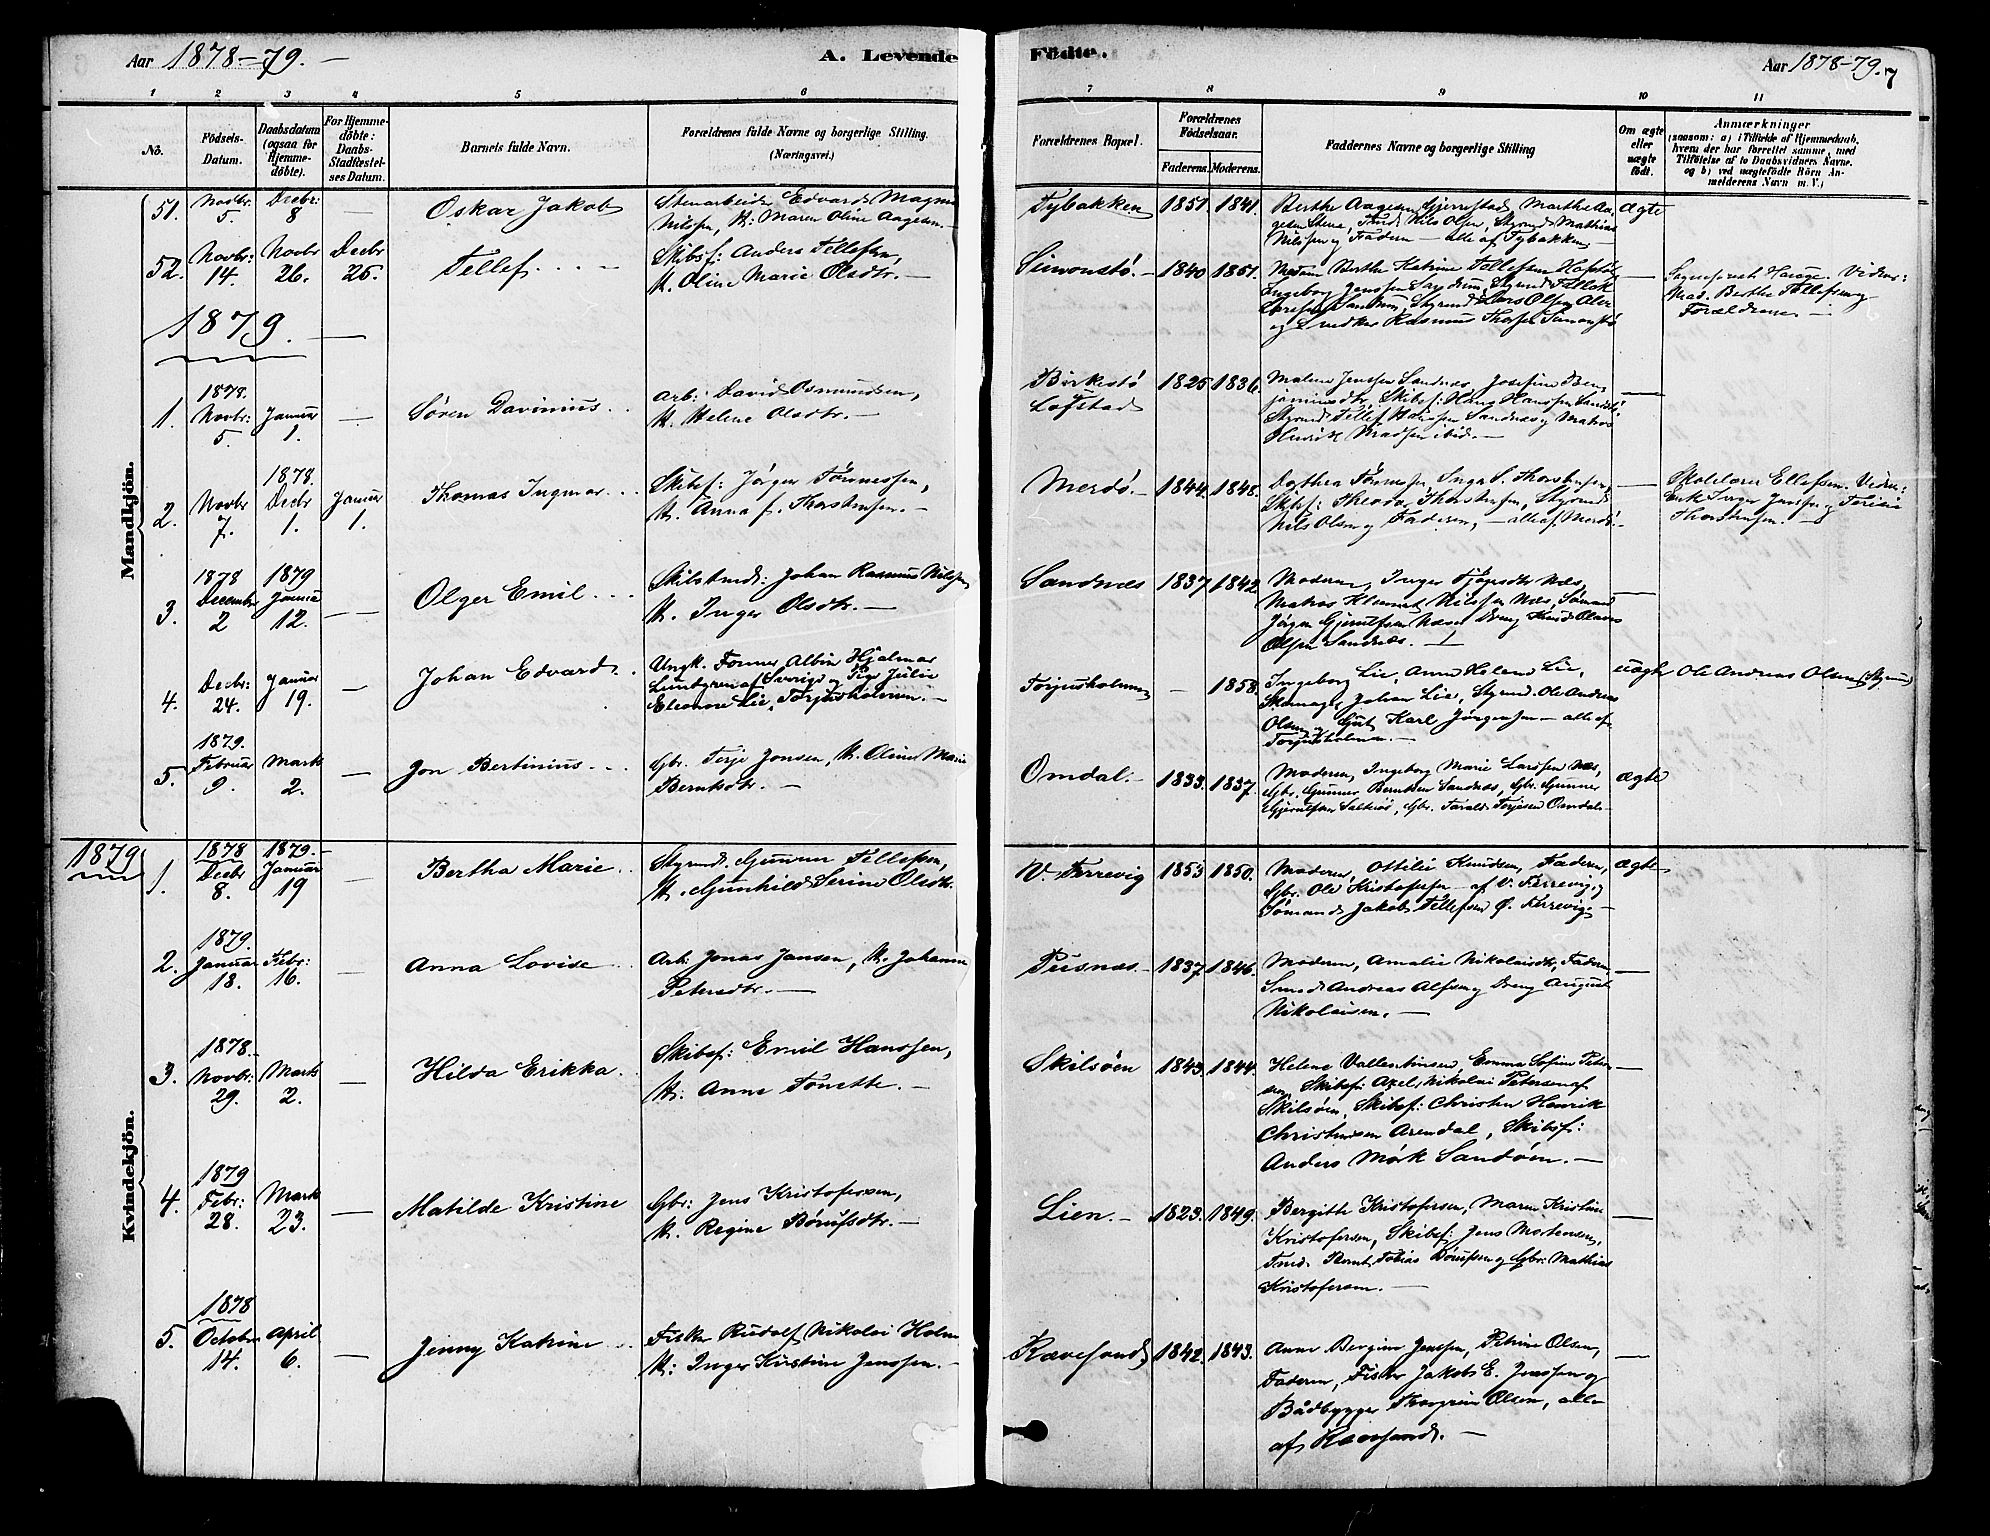 Aar 1878-79. —
A. Levende Födte.
Aar 1878-79. 7
1 2 3 4 5 6 7 8 9 10 11
No.
Födsels-Datum.
Daabsdatum (ogsaa for Hjemmedöbte).
For Hjemmedöbte: Daabs-Stadfæstelses Datum.
Barnets fulde Navn.
Forældrenes fulde Navne og borgerlige Stilling. (Næringsvei.)
Forældrenes Bopæl.
Forældrenes Födselsaar.
Faderens. Moderens.
Faddernes Navne og borgerlige Stilling
Om ægte eller uægte födt.
Anmærkninger
(saasom: a) i Tilfælde af Hjemmedaab, hvem der har forrettet samme, med Tilföielse af to Daabsvidners Navne. og b) ved uægtefödte Börn Anmelderens Navn m. V.)
Mandkjön.
51. Novbr. 5. Decbr: 8 — Oskar Jakob
Stenarbeider Edvard Magnus
Nilssen, H: Maren Oline Aagesen.—
Tybakken 1851. 1841.
Berthe Aagesen Gjerrestad, Marthe Aagesen Nils Olsen, Styrmd Mathias
Nilssen og Faderen — alle af Tybakken —
ægte
52. Novbr: 14. Novbr 26. Decbr 26. Tellef. . . . —
Skibsf: Anders Tellefsen,
H. Oline Marie Olsdtr. —
Simonstø. — 1840 1851.
Madam Berthe Katrine Tellefsen
Ingeborg Jenssen Styrmd Tellef
Styrmd Lars Olsen
og Rasmus Simonstø
—
Hauge. Vidner:
Mad. Berthe Tellefsen og
Forældrene —
1879. —
1. 1878. Novbr: 5. Januar 1. — Søren Davinius. .
Arb: David Osmundsen,
H. Helene Olsdtr. —
Birkestø
Løfstad
1825 1836.
Malene Jenssen Sandnæs, Josefine Benjaminsdtr, Skibsf: Hans Hanssen
Styrmd Tellef Hanssen Sandnæs og Matros
Henrik Madssen ibid. —
—
2. Novbr 7. 1878. Decbr 1. Januar 1. Thomas Ingmar. . .
Skibsf: Jørgen Tønnessen,
H. Anna f. Thorstensen. —
Merdø. — 1844. 1848.
Dorthea Tønnesen, Inga S. Thorstensen,
Skibsf: Theodor Thorstensen, Styrmd
Nils Olsen og Faderen, — alle af Merdø. —
—
Skolelærer Ellefsen. Vidner:
Enke Inger Jenssen og Terese
Thorstensen. —
3. 1878 December 2 1879 Januar 12. — Olger Emil . . .
Skibstmd: Johan Rasmus Nilssen,
H. Inger Olsdtr. —
Sandnæs 1837 1842
Moderen, Inger Næs,
Matros Klemmet Nilssen Næs, Sømand
Jørgen Gjerulfsen Næs og Dreng Knud Olaves
Olsen Sandnæs. —
—
4. Decbr: 24. Januar 19. — Johan Edvard. .
Ungk. Former Albin Hjalmar
Lundgren af Sverige og Pige Julie
Eleonore Lie, Torjusholmen. —
Torjusholmen — 1858.
Ingeborg Lie, Anne Helene Lie,
Skomager Johan Lie, Styrmd Ole Andreas
Olsen og Karl Jørgensen — alle af
Torjusholmen. —
uægte
Ole Andreas Olsen (Styrmd)
5. 1879. Februar 9. Marts 2. — Jon Bertinius. . .
Gbr. Terje Jonsen, H. Oline Marie
Berntsdtr. —
Omdal. — 1833. 1837.
Moderen, Ingeborg Marie Larssen Næs,
Gbr. Gunner Berntsen Sandnæs, Gbr. Gunner
Gjerulfsen Saltrø, Gbr. Tarald Terjesen Omdal. —
ægte
Kvindekjön.
1879
1. 1878 Decbr 8. 1879. Januar 19 — Bertha Marie. .
Styrmd. Gunner Tellefsen,
H. Gunhild Serine Olsdtr.
V. Terrevig 1853 1850.
Moderen, Ottilie Knudsen, Faderen,
Gbr. Ole Kristofersen — af V. Terrevig, og
Sømand Jakob Tellefsen Ø. Terrevig. —
ægte
2. 1879. Januar 18. Febr: 16. — Anna Lovise. . .
Arb: Jonas Jansen, H. Johanne
Petersdtr. —
Pusnæs. — 1837 1846.
Moderen, Amalie Nikolaisdtr, Faderen,
Smed Andreas Alfsen og Dreng August
Nikolaisen. —
—
3. 1878. Novbr: 29. Marts 2. — Hilda Erikka. .
Skibsf: Emil Hanssen,
H. Anne Tonette. —
Skilsøen 1843. 1844.
Helene Vallentinsen, Emma Sofine Petersen, Skibsf: Axel Nikolai Petersen af
Skilsøen, Skibsf: Christen Henrik
Christensen Arendal, Skibsf:
Anders Mørk Sandøen. —
—
4. 1879 Febr: 28. Marts 23. — Matilde Kristine
Gbr: Jens Kristofersen,
H. Regine Børufsdtr. —
Lien. — 1823. 1849.
Bergitte Kristofersen, Maren Kristine
Kristofersen, Skibsf: Jens Mortensen,
Tmd. Bernt Tobias Børufsen og Gbr: Mathias
Kristofersen. —
—
5. 1878 October 14. April 6. — Jenny Katrine . . .
Fisker Rudolf Nikolai Holm
H: Inger Kirstine Jenssen. —
Rævesand. 1842. 1843.
Anne Bergine Jenssen, Petrine Olsen,
Faderen, Fisker Jakob E. Jenssen og
Bådbygger Thorgrim Olsen, alle
af Rævesand. —
—